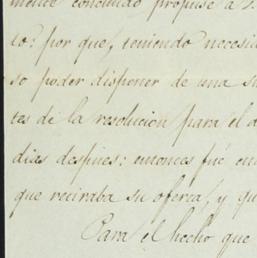 mente concluido propuse a S.
to? por que, teniendo necesi
so poder disponer de una su
tes de la resolucion para el d
dias despues: entonces fué cu
que reciraba su oferta, y qu
Para el hecho que